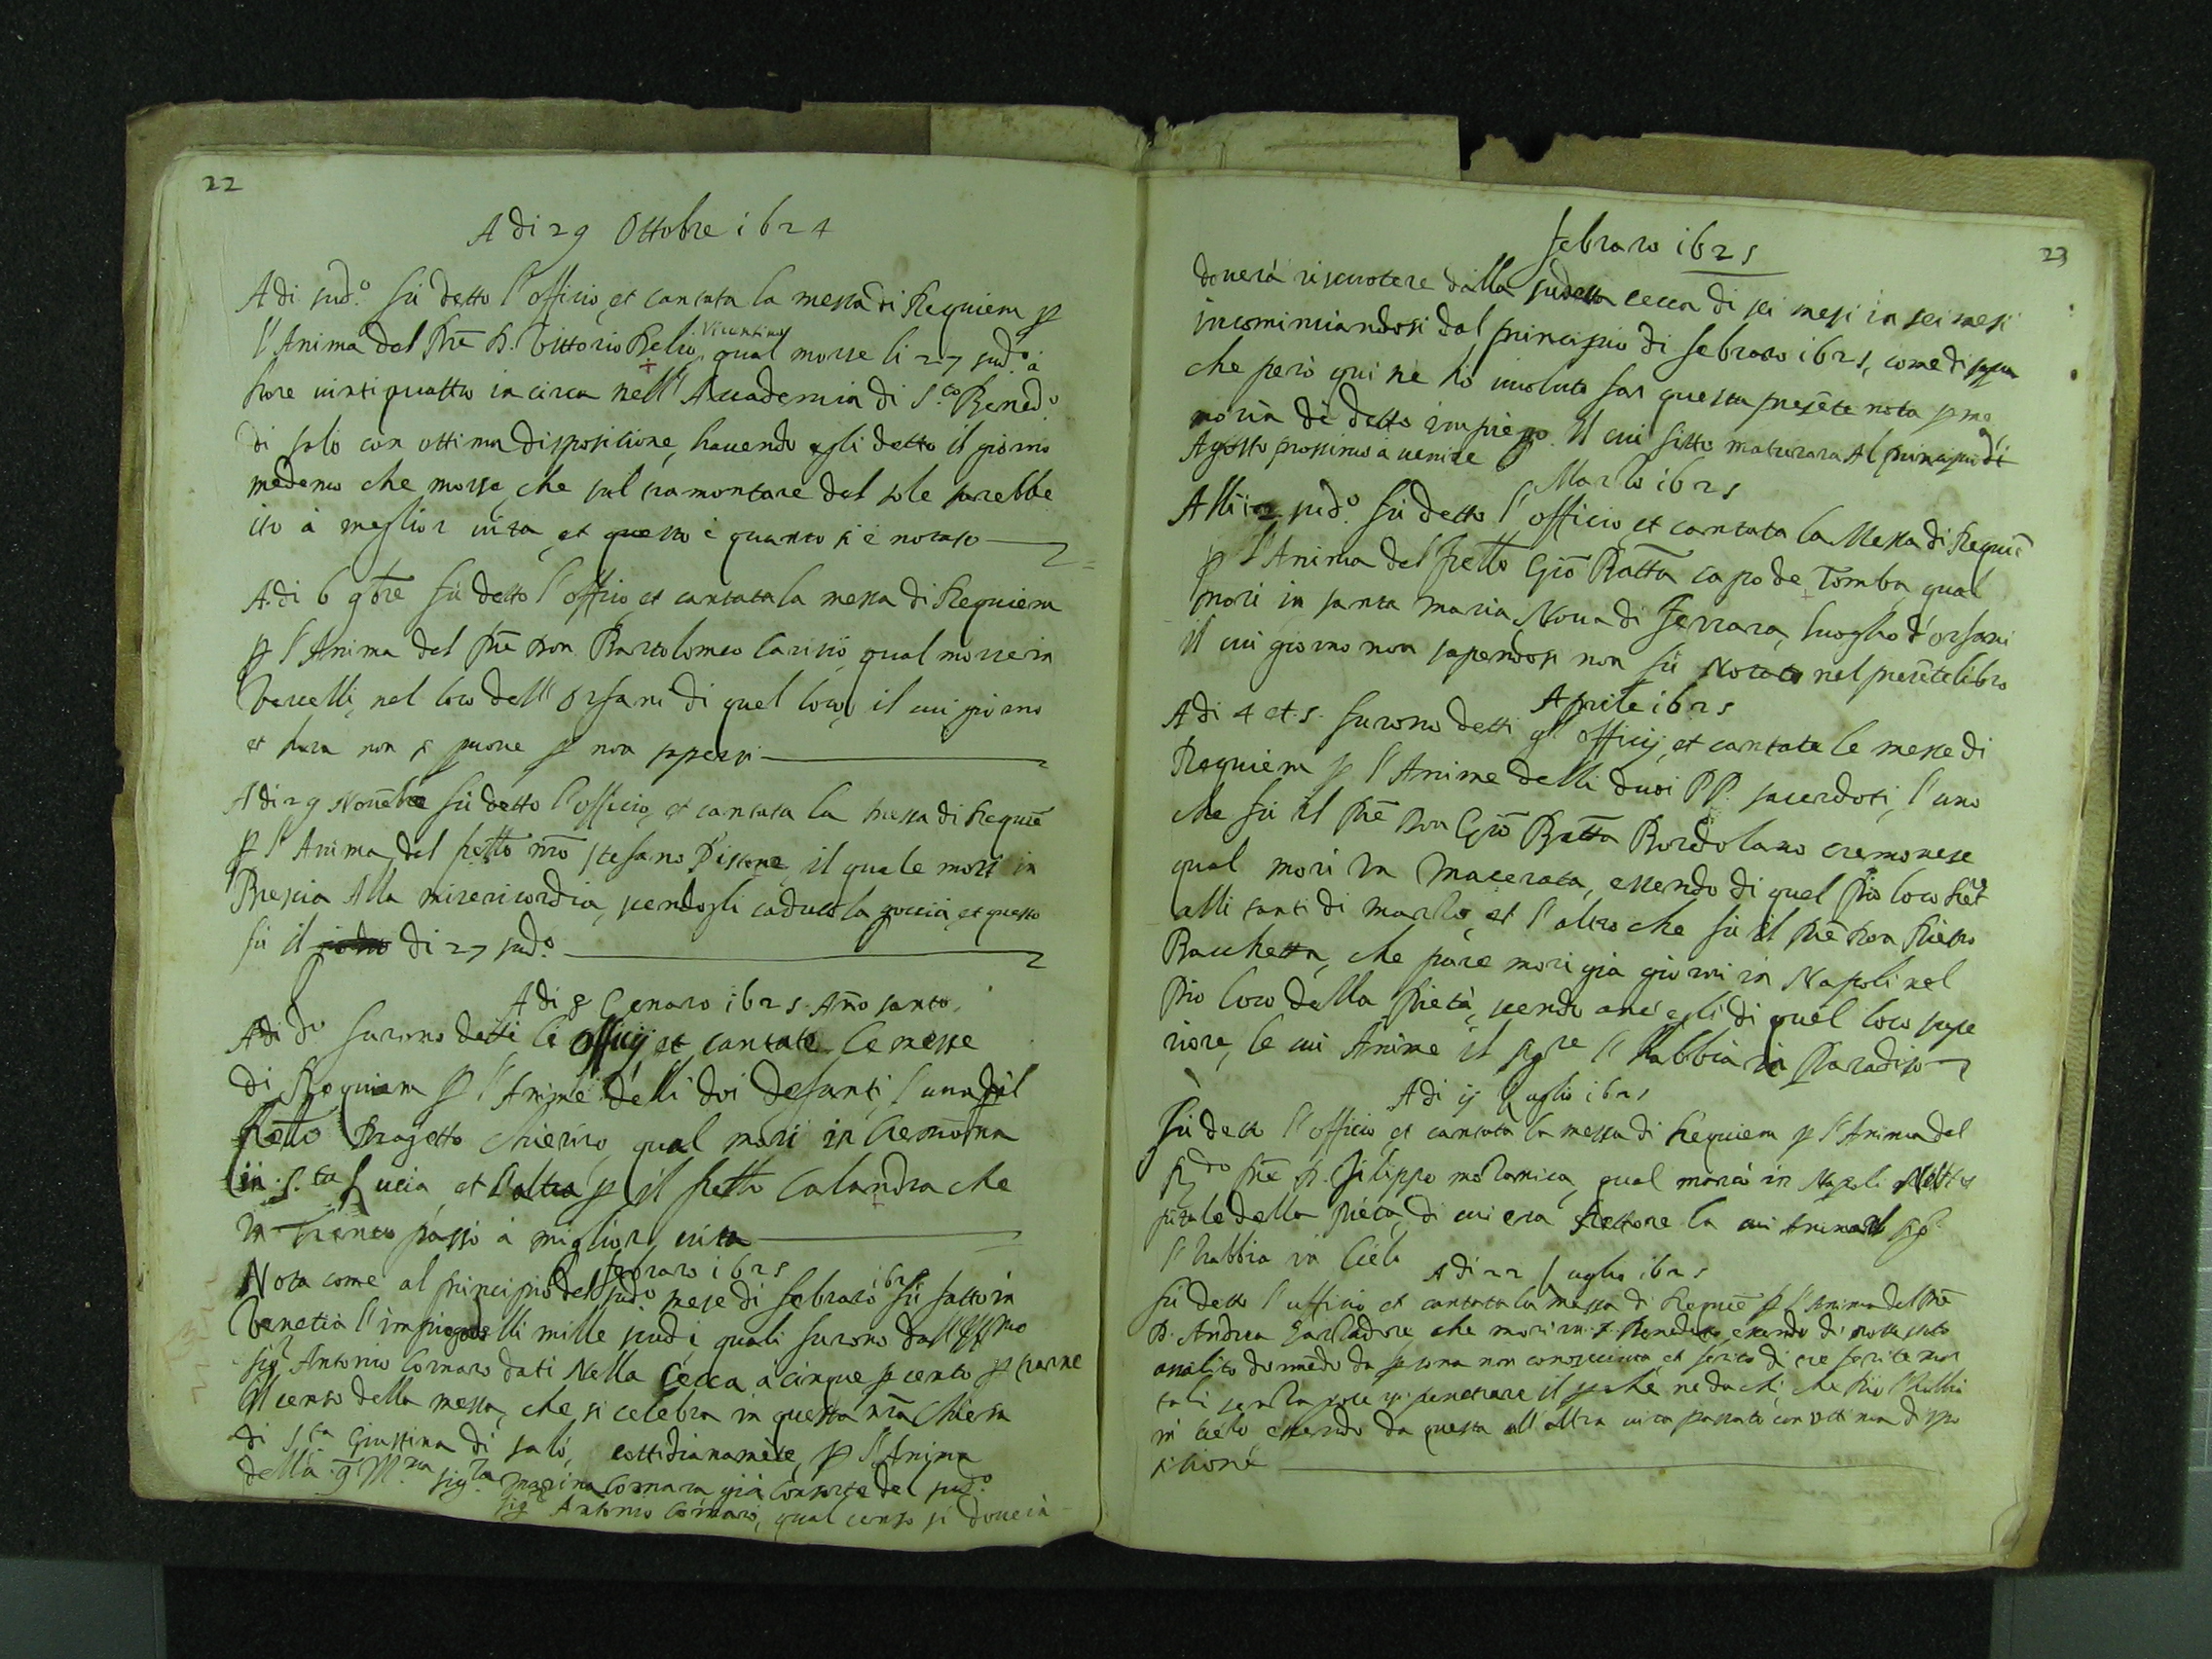 22
A di 29 Ottobre i624
A di sud.o fù detto l'officio, et cantata la messa di Requiem p
l'Anima del Prē D. Vittorio Belio Vicentino, qual morse li 27 sud.o à
hore vinti quattro in circa nell'Accademia di S.to Bened.o
di salò con ottima dispositione, havendo egli detto il giorno
medemo che morse, che sul tramontare del sole sarebbe
ito à meglior vita, et questo è quanto si è notato
A di 6 9bre fù detto l'officio et cantata la messa di Requiem
p l'Anima del Prē Don Bartolomeo Carisij, qual morse in
Vercelli, nel loco dell'Orfani di quel loco, il cui giorno
et hora non si pone p non sapersi
A di 29 Novēbre fù detto l'officio, et cantata la messa di Requiē
p l'Anima del frello nrō stefano Pissone, il quale morì in
Brescia Alla misericordia, sendogli caduta la goccia, et questo
fù il di 27 sud.o
A di 8 Genaro i625 Anno santo
A di d.o furono detti li officij et cantate le messe
di Requiem p l'Anime delli doi defunti, l'una pil
frello Bragetto chierico, qual morì in Cremona
in S.ta Lucia, et l'altra p il frello Calandra che
in Trento passò à miglior vita
febraro i625
Nota come al principio del sud.o mese di febraro i625 fù fatto in
Venetia l'impiego delli mille scudi, quali furono dall'Illmo
sig.r Antonio Cornaro dati Nella Cecca à cinque p cento p trarne
Il censo della messa, che si celebra in questa nrā Chiesa
di S.ta Giustina di salò, cottidianamēte, p l'Anima
della q Ill.ma sig.ra Marina Cornara già consorte del sud.o
sig.r Antonio Cornaro, qual censo si doverà
23
febraro i625
doverà riscuotere dalla sudetta cecca di sei mesi in sei mesi
incominciandosi dal principio di febraro i625, come di sopra
che però qui nè hò voluto far questa presēte nota p me
moria dè detto impiego. Il cui fitto maturarà Al principio di
Agosto prossimo à venire
Marzo i625
Alli i2 sud.o fù detto l'officio et cantata la Messa di Requiē
p l'Anima del frello Giō Batta capo de Tomba, qual
morì in santa maria Nova di Ferrara, luogho d'orfani
il cui giorno non sapendosi non fù Notato nel presētelibro
Aprile i625
A di 4 et 5 furono detti gl'officij, et cantate le messe di
Requiem p l'Anime delli duoi PP. sacerdoti, l'uno
che fù il Prē Don Giō Batta Bordolano cremonese
qual morì in Macerata, essendo di quel Pio loco Ret.re
alli tanti di marzo, et l'altro che fù il Prē Don Pietro
Bacchetta, che pure morì già giorni in Napoli nel
Pio loco della Pietà, sendo anc'egli di quel loco supe
riore, le cui Anime il sgre l'habbia in Paradiso
A di ij Luglio i625
Fù detto l'officio et cantata la messa di Requiem p l'Anima del
R.do Prē D. filippo molanica, qual morì in Napoli Nell'os
pitale della Pietà, di cui era Rettore la cui Anima il sig.r
l'habbia in Cielo
A di 22 Luglio i625
fù detto l'ufficio et cantata la messa di Requiē p l'Anima del Prē
D. Andrea che morì in S. Benedetto, essendo di notte stato
assalito dormēdo da persona non conosciuta et ferito di tre ferite mor
tali senza poter penetrare il pchè nè da chi, che Dio l'habbia
in Cielo, essendo da questa all'altra vita passato con ottima dispo
sitione